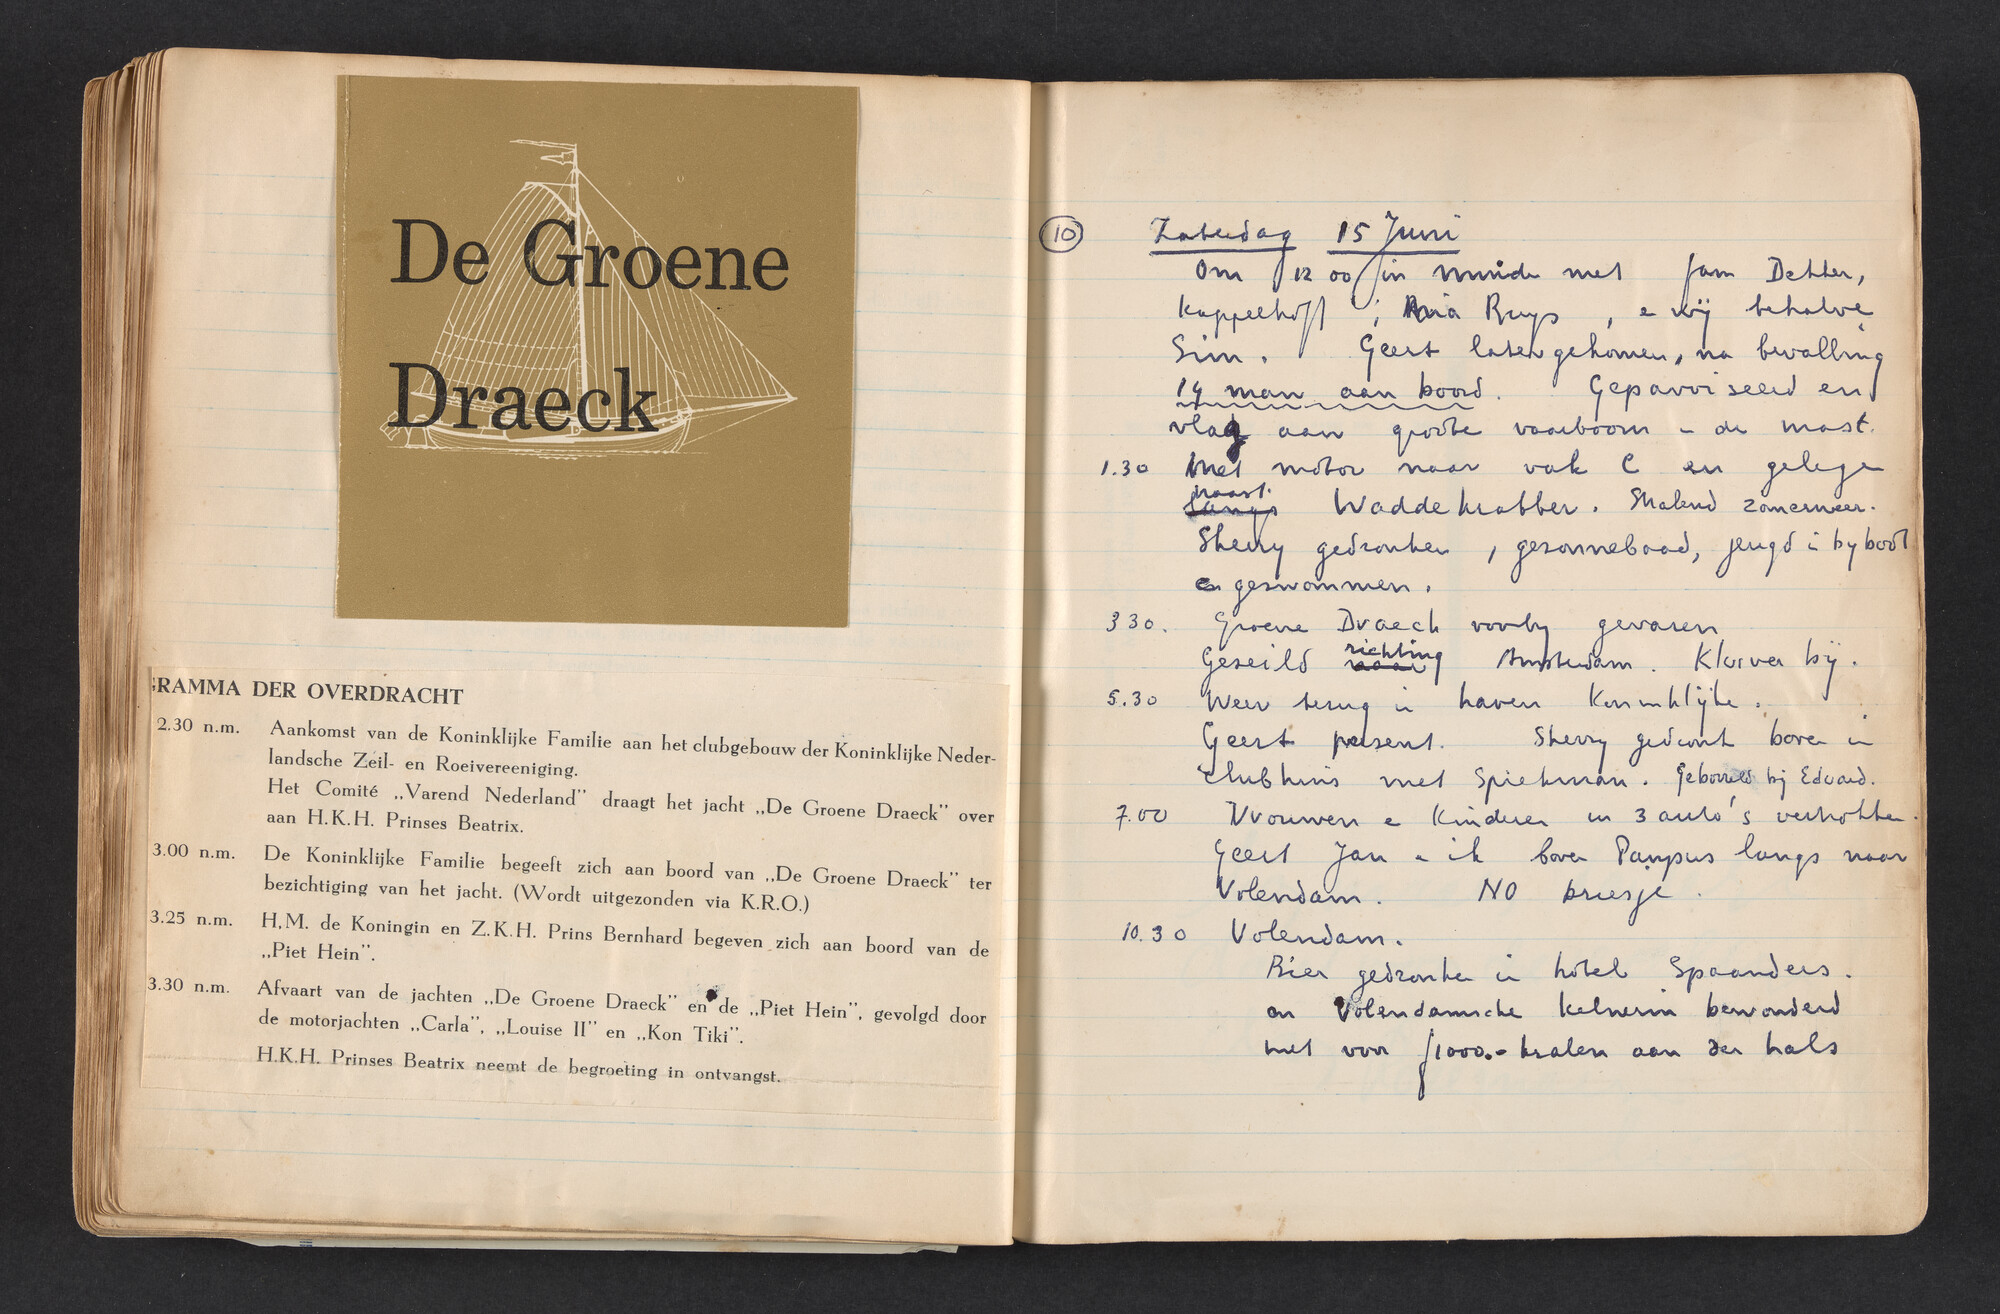 De Groene
Draeck
GRAMMA DER OVERDRACHT
2.30 n.m. Aankomst van de Koninklijke Familie aan het clubgebouw der Koninklijke Neder-
landsche Zeil- en Roeivereeniging.
Het Comité „Varend Nederland" draagt het jacht „De Groene Draeck" over
aan H.K.H. Prinses Beatrix.
3.00 n.m. De Koninklijke Familie begeeft zich aan boord van „De Groene Draeck" ter
bezichtiging van het jacht. (Wordt uitgezonden via K.R.O.)
3.25 n.m. H.M. de Koningin en Z.K.H. Prins Bernhard begeven zich aan boord van de
„Piet Hein".
3.30 n.m. Afvaart van de jachten „De Groene Draeck" en de „Piet Hein", gevolgd door
de motorjachten „Carla", „Louise II" en „Kon Tiki".
H.K.H. Prinses Beatrix neemt de begroeting in ontvangst.
10 Zaterdag 15 Juni
Om 12 00 in muide met fam Dekker,
Kappelhoff, Ria Ruys, e wij behalve
Sim. Geert later gekomen, na bevalling
14 man aan boord. Gepavoiseerd en
vlag aan groote vaarboom in de mast.
1.30 Met motor naar vak C en gelegen
naast langs Waddekrabber. Stralend zomerweer.
Sherry gedronken, gezonnebaad, jeugd in bijboot
en gezwommen.
3 30. Groene Draeck voorby gevaren
Gezeild richting naar Amsterdam. Kluiver bij.
5.30 Weer terug in haven Koninklijke.
Geert present. Sherry gedronk boven in
clubhuis met Spiekman. Geborreld bij Eduard.
7.00 Vrouwen e Kinderen in 3 auto's vertrokken.
Geert Jan e ik boven Pampus langs naar
Volendam. NO briesje.
10.30 Volendam.
Bier gedronken in hotel Spaanders.
en Volendamsche kelnerin bewonderd
met voor ƒ1000.- kralen aan den hals